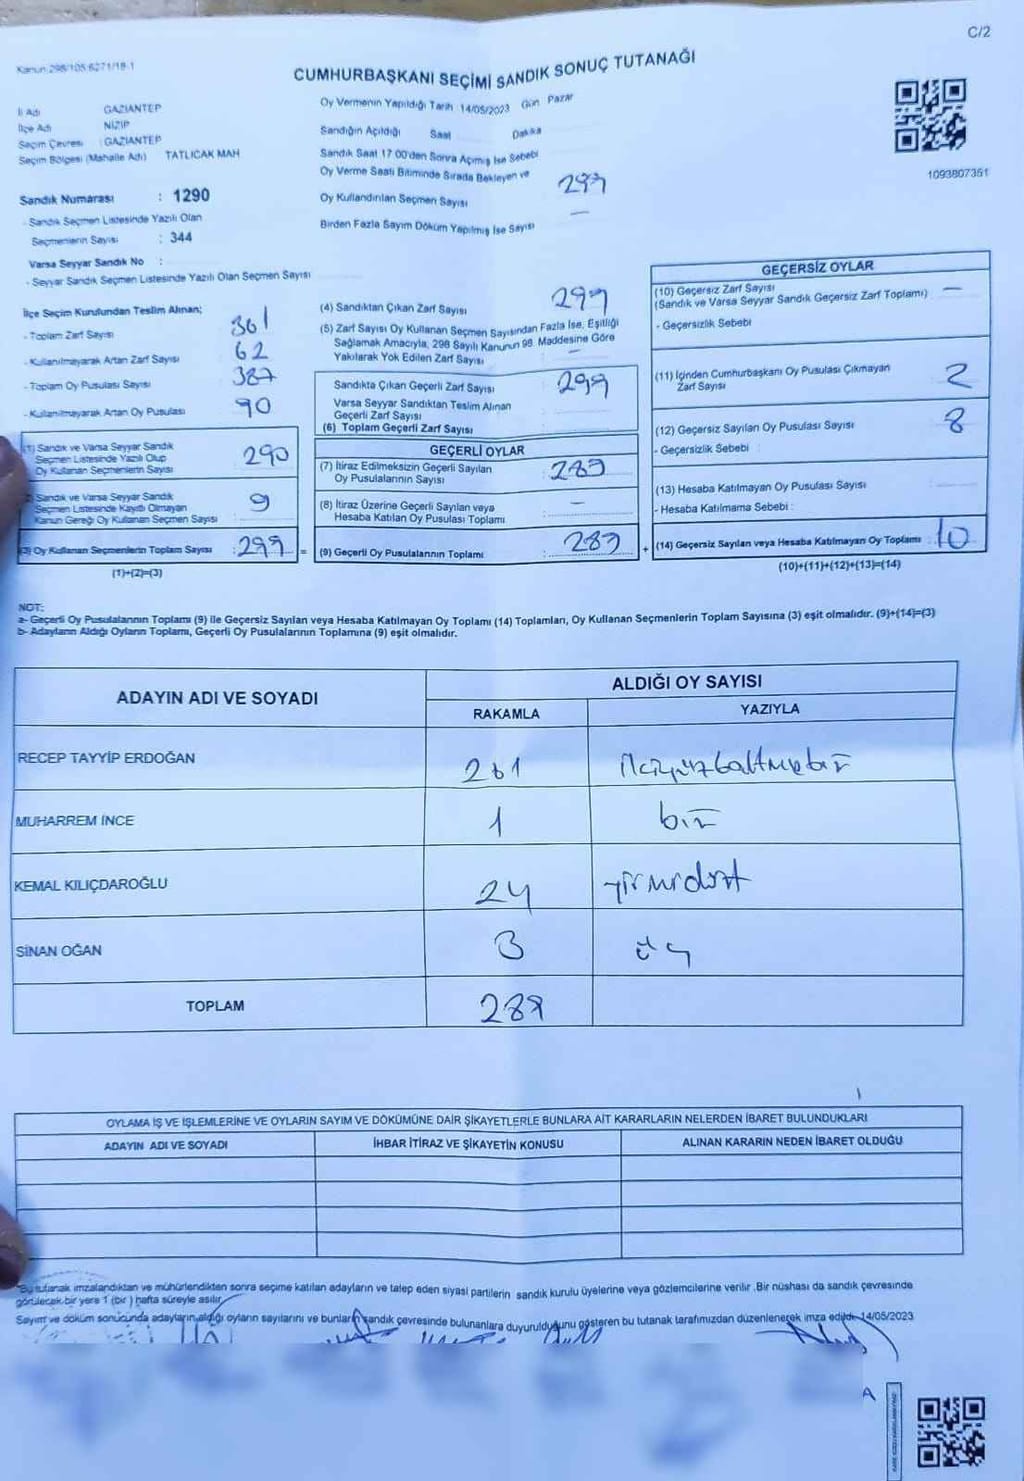 C/2
Kanun:298/105:6271/18-1
CUMHURBAŞKANI SEÇİMİ SANDIK SONUÇ TUTANAĞI
İl Adı GAZİANTEP
İlçe Adı NİZİP
Seçim Çevresi : GAZİANTEP
Seçim Bölgesi (Mahalle Adı) TATLICAK MAH
Sandık Numarası : 1290
- Sandık Seçmen Listesinde Yazılı Olan
Seçmenlerin Sayısı : 344
Varsa Seyyar Sandık No :
- Seyyar Sandık Seçmen Listesinde Yazılı Olan Seçmen Sayısı
Oy Vermenin Yapıldığı Tarih :14/05/2023 Gün Pazar
Sandığın Açıldığı Saat Dakika
Sandık Saat 17:00'den Sonra Açımış İse Sebebi
Oy Verme Saati Bitiminde Sırada Bekleyen ve
Oy Kullandırılan Seçmen Sayısı 299
Birden Fazla Sayım Döküm Yapılmış İse Sayısı —
1093807351
İlçe Seçim Kurulundan Teslim Alınan;
- Toplam Zarf Sayısı 361
- Kullanılmayarak Artan Zarf Sayısı 62
- Toplam Oy Pusulası Sayısı 387
- Kullanılmayarak Artan Oy Pusulası 90
(1) Sandık ve Varsa Seyyar Sandık
Seçmen Listesinde Yazılı Olup
Oy Kullanan Seçmenlerin Sayısı 290
(2) Sandık ve Varsa Seyyar Sandık
Seçmen Listesinde Kayıtlı Olmayan
Kanun Gereği Oy Kullanan Seçmen Sayısı 9
(3) Oy Kullanan Seçmenlerin Toplam Sayısı : 299 =
(1)+(2)=(3)
(4) Sandıktan Çıkan Zarf Sayısı 299
(5) Zarf Sayısı Oy Kullanan Seçmen Sayısından Fazla İse, Eşitliği
Sağlamak Amacıyla, 298 Sayılı Kanunun 98. Maddesine Göre
Yakılarak Yok Edilen Zarf Sayısı —
Sandıkta Çıkan Geçerli Zarf Sayısı 299
Varsa Seyyar Sandıktan Teslim Alınan
Geçerli Zarf Sayısı
(6) Toplam Geçerli Zarf Sayısı
GEÇERLİ OYLAR
(7) İtiraz Edilmeksizin Geçerli Sayılan
Oy Pusulalarının Sayısı 289
(8) İtiraz Üzerine Geçerli Sayılan veya
Hesaba Katılan Oy Pusulası Toplamı —
(9) Geçerli Oy Pusulalarının Toplamı : 289 +
GEÇERSİZ OYLAR
(10) Geçersiz Zarf Sayısı —
(Sandık ve Varsa Seyyar Sandık Geçersiz Zarf Toplamı)
- Geçersizlik Sebebi
(11) İçinden Cumhurbaşkanı Oy Pusulası Çıkmayan
Zarf Sayısı 2
(12) Geçersiz Sayılan Oy Pusulası Sayısı 8
- Geçersizlik Sebebi
(13) Hesaba Katılmayan Oy Pusulası Sayısı
- Hesaba Katılmama Sebebi :
(14) Geçersiz Sayılan veya Hesaba Katılmayan Oy Toplamı : 10
(10)+(11)+(12)+(13)=(14)
NOT:
a- Geçerli Oy Pusulalarının Toplamı (9) ile Geçersiz Sayılan veya Hesaba Katılmayan Oy Toplamı (14) Toplamları, Oy Kullanan Seçmenlerin Toplam Sayısına (3) eşit olmalıdır. (9)+(14)=(3)
b- Adayların Aldığı Oyların Toplamı, Geçerli Oy Pusulalarının Toplamına (9) eşit olmalıdır.
ADAYIN ADI VE SOYADI ALDIĞI OY SAYISI
RAKAMLA YAZIYLA
RECEP TAYYİP ERDOĞAN 261 ikiyüzaltmışbir
MUHARREM İNCE 1 bir
KEMAL KILIÇDAROĞLU 24 yirmidört
SİNAN OĞAN 3 üç
TOPLAM 289
OYLAMA İŞ VE İŞLEMLERİNE VE OYLARIN SAYIM VE DÖKÜMÜNE DAİR ŞİKAYETLERLE BUNLARA AİT KARARLARIN NELERDEN İBARET BULUNDUKLARI
ADAYIN ADI VE SOYADI İHBAR İTİRAZ VE ŞİKAYETİN KONUSU ALINAN KARARIN NEDEN İBARET OLDUĞU
*Bu tutanak imzalandıktan ve mühürlendikten sonra seçime katılan adayların ve talep eden siyasi partilerin sandık kurulu üyelerine veya gözlemcilerine verilir. Bir nüshası da sandık çevresinde
görülecek bir yere 1 (bir) hafta süreyle asılır.
Sayım ve döküm sonucunda adayların aldığı oyların sayılarını ve bunların sandık çevresinde bulunanlara duyurulduğunu gösteren bu tutanak tarafımızdan düzenlenerek imza edildi. 14/05/2023
A